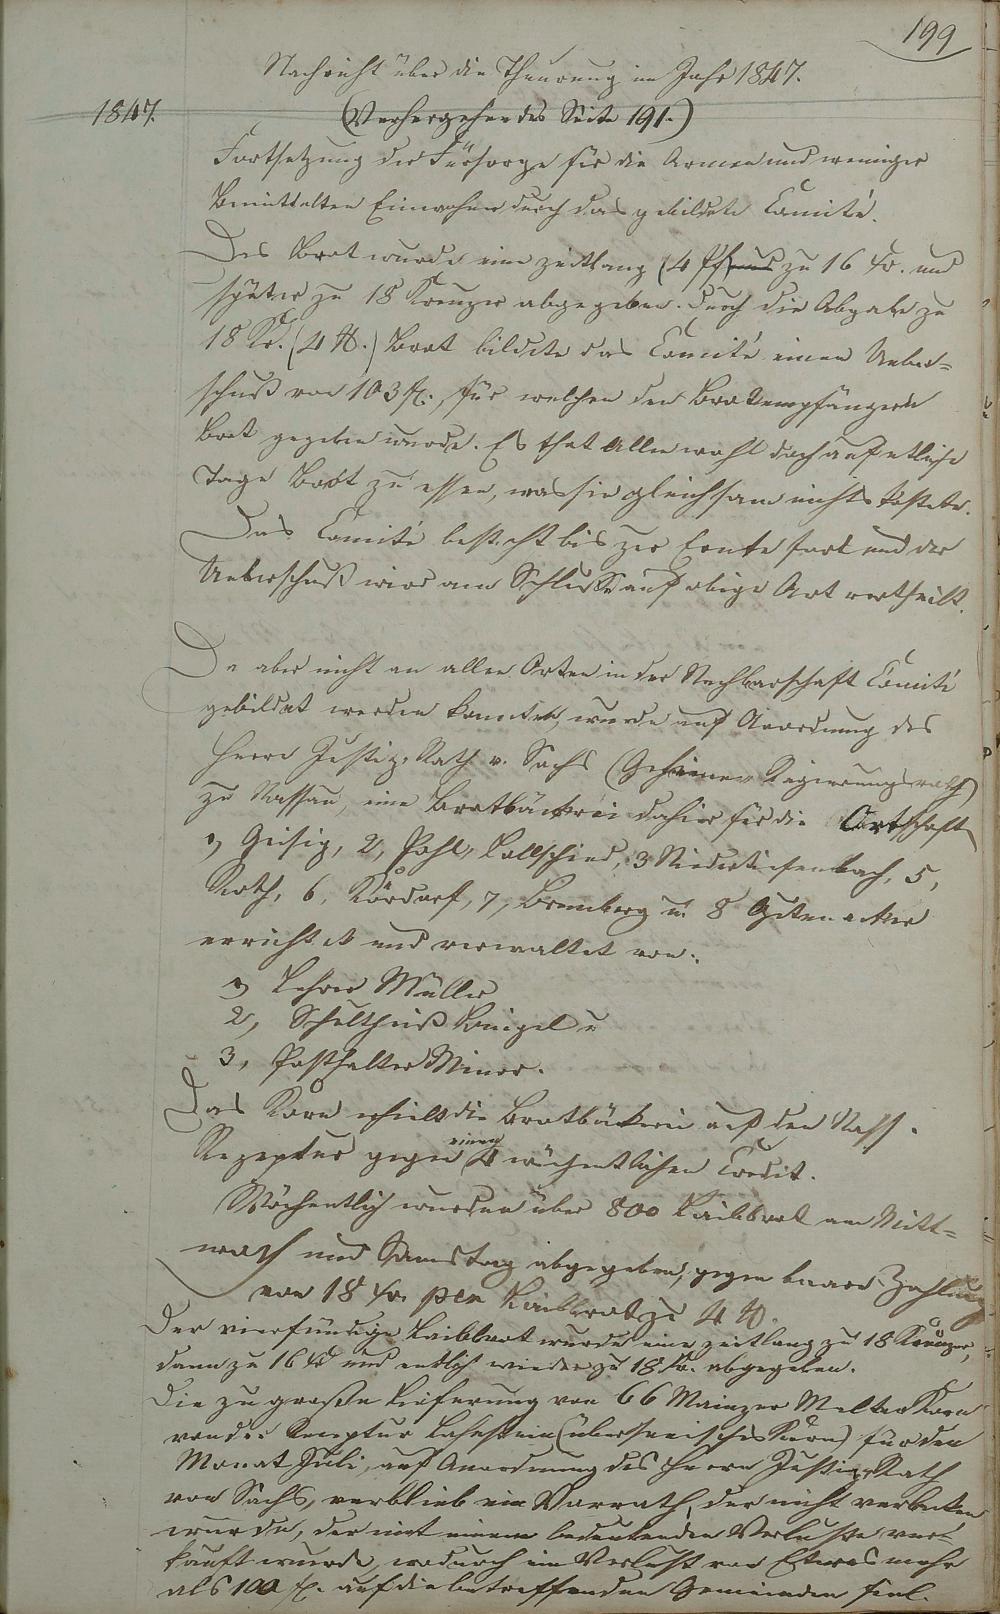 199
Nachricht über die Theurung im Jahr 1847.
1847. (Vorhergehendes Seite 191.)
Fortsetzung der Fürsorge für die Armen und weniger
Bemittelten Einwohner durch das gebildete Comité.
Das Brot wurde eine zeitlang (4 Pfund zu 16 Kr. und
später zu 18 Kreuzer abgegeben. Durch die Abgabe zu
18 Kr. (4 ℔.) Brot bildete das Comité einen Ueber=
schuß von 103 fl., für welchen den Brodempfängern
Brot gegeben wurde. Es that Allen wohl doch auf etliche
Tage Brot zu essen, was sie gleichsam nichts kostete.
Das Comité besteht bis zur Ernte fort und der
Ueberschuß wird am Schlusse auf obige Art vertheilt.
Da aber nicht an allen Orten in der Nachbarschaft Comité
gebildet werden konnten, wurde auf Anordnung des
Herrn Justiz-Rath v. Sachs (Geheimer Regierungsrath)
zu Nassau, eine Brotbäckerei dahier für die Ortschaft
1, Geisig, 2, Pohl, Lollschied, 3 Niedertiefenbach, 5,
Roth, 6, Kördorf, 7, Bremberg u. 8 Gutenacker
errichtet und verwaltet von:
1, Lehrer Müller
2, Schultheiß Bingel u
3, Posthalter Minor.
Das Korn erhielt die Brotbäckerei auf den Nass.
Rezeptur gegen einen 4 wöchentlichen Credit.
Wöchentlich wurden über 800 Laibbrot am Mitt=
woch und Samstag abgegeben, gegen baare Zahlung
von 18 Kr. per Laibbrot zu 4 ℔.
Der vierfündige Laibbrot wurde eine zeitlang zu 18 Kreuzer,
dann zu 16 Kr und entlich wieder zu 18 Kr. abgegeben.
Die zu große Lieferung von 66 Mainzer Malter Korn
von der Receptur Lahnstein (überseeisches Korn) für den
Monat Juli, auf Anordnung des Herrn Justiz-Rath
von Sachs, verblieb ein Vorrath, der nicht verbacken
wurde, der mit einem bedeutenden Verluste ver=
kauft wurde, wodurch ein Verlust von Etwas mehr
als 100 fl. auf die betreffenden Gemeinden fiel.